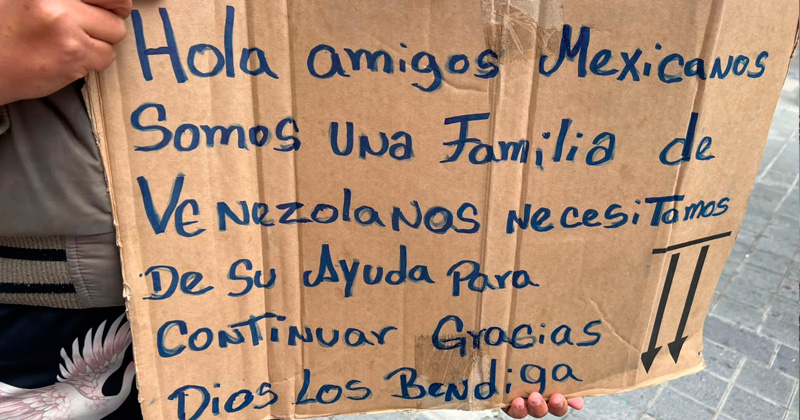 Hola amigos Mexicanos
Somos una Familia de
Venezolanos necesitamos
De Su Ayuda Para
Continuar Gracias
Dios Los Bendiga